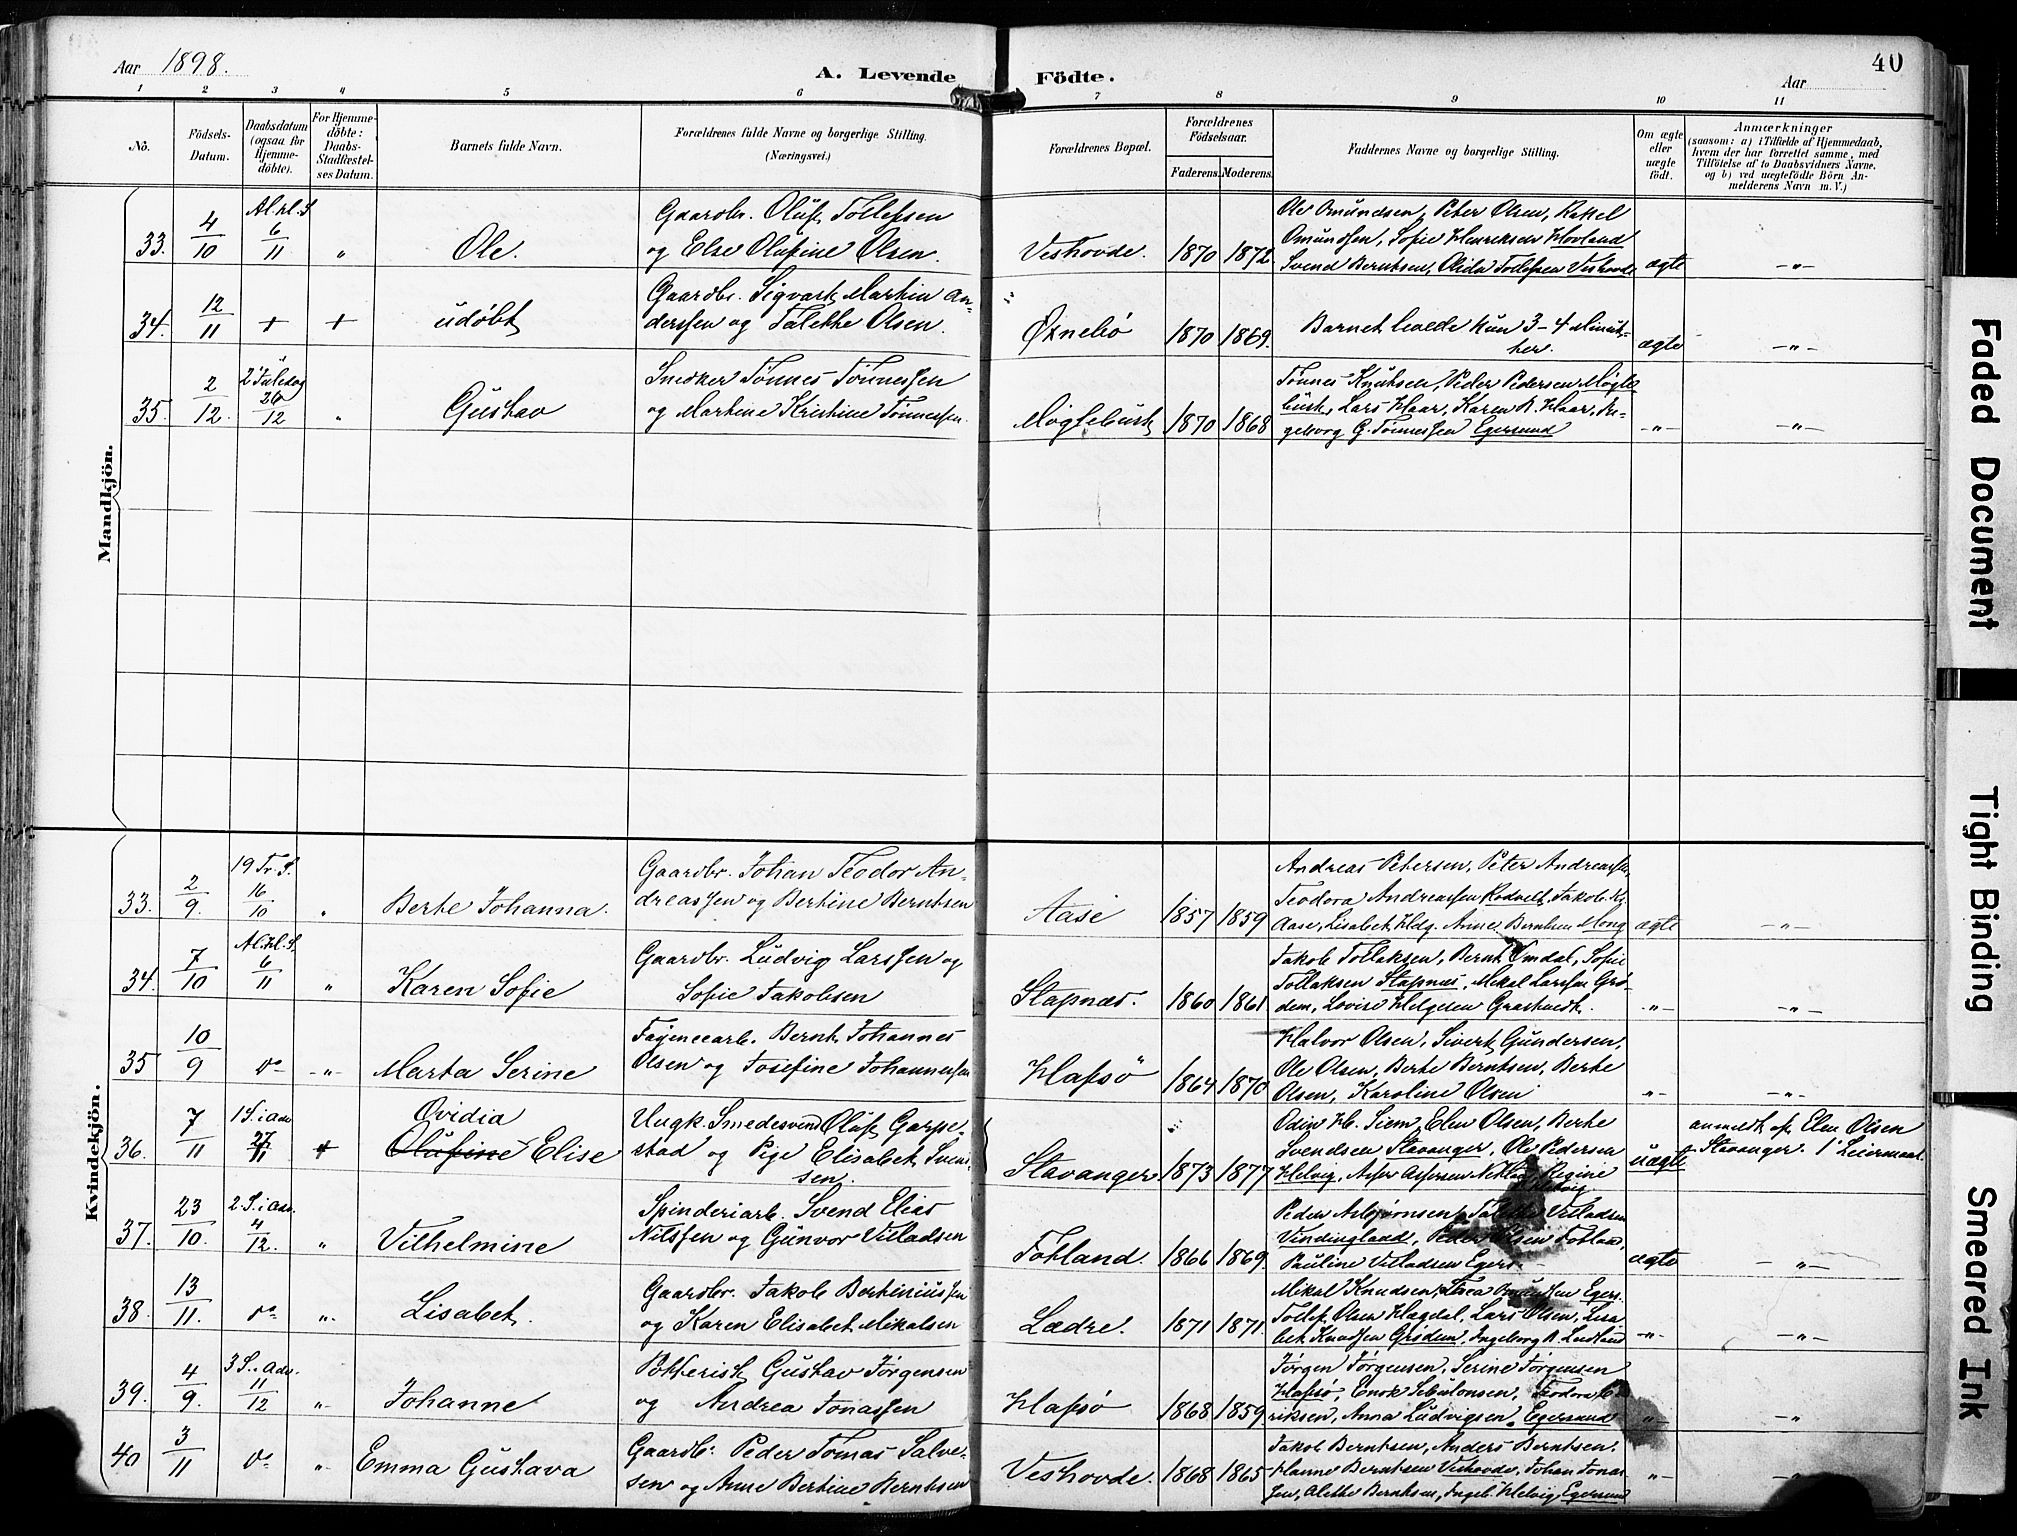 Aar 1898.
A. Levende Födte.
Aar
40
1 2 3 4 5 6 7 8 9 10 11
No.
Födsels-Datum.
Daabsdatum (ogsaa for Hjemme-döbte).
For Hjemme-döbte: Daabs-Stadfæstel-ses Datum.
Barnets fulde Navn.
Forældrenes fulde Navne og borgerlige Stilling. (Næringsvei.)
Forældrenes Bopæl.
Forældrenes Födselsaar.
Faderens. Moderens.
Faddernes Navne og borgerlige Stilling.
Om ægte eller uægte födt.
Anmærkninger
(saasom: a) i Tilfælde af Hjemmedaab,
hvem der har forrettet samme, med
Tilföielse af to Daabsvidners Navne.
og b) ved uægtefödte Börn An-
melderens Navn m. V.)
Mandkjön.
33. 4/10 Al. hl. S 6/11 " Ole.
Gaardbr. Oluf Tollefsen
og Else Olufine Olsen.
Veshovde. 1870 1872.
Ole Omundsen, Peter Olsen, Rakel
Omundsen, Sofie Henriksen Hovland
Svend Berntsen, Olida Tollefsen Veshovde
ægte -"-
34. 12/11 + + udøbt
Gaardbr. Sigvart Martin An-
derssen og Talette Olsen.
Øxnebø 1870 1869.
Barnet levede kun 3-4 Minut-
ter.
ægte -"-
35. 2/12. 2 Juledag 26/12 " Gustav
Snedker Tønnes Tønnessen
og Martine Kristine Tønnessen.
Møglebust 1870 1868
Tønnes Knutsen, Peder Pedersen Møgle
bust, Lars Haar, Karen R. Haar, In-
geborg G. Tønnessen Egersund
-"- -"-
Kvindekjön.
33. 2/9. 19 Tr. S. 16/10 " Berte Johanna.
Gaardbr. Johan Teodor An-
dreassen og Bertine Berntsen
Aase 1857 1859
Andreas Petersen, Peter Andreassen
Teodora Andreassen Rodvelt, Jakob
Aase, Lisabet Hdg. Anne Berntsen Mong
ægte -"-
34. 7/10 Al. Hl. S. 6/11 " Karen Sofie
Gaardbr. Ludvig Larssen og
Sofie Jakobsen
Stapnæs. 1860 1861.
Jakob Tollaksen, Bernt Omdal, Sofie
Tollaksen Stapnes, Mikal Larssen Grø-
dem, Lovise Helgesen
-"- -"-
35 10/9 do -"- Marta Serine
Fajancearb. Bernt Johannes
Olsen og Josefine Johannessen
Hafsö 1864 1870
Halvor Olsen, Sivert Gundersen,
Ole Olsen, Berte Berntsen, Berte
Olsen, Karoline Olsen
-"- -"-
36. 7/11 1 S. i Adv 27/11 + Ovidia
Olufine Elise
Ungk. Smedesvend Oluf Garpe-
stad og Pige Elisabet Svend-
sen.
Stavanger 1873 1877
Odin H. Siem, Elen Olsen, Berte
Svendsen Stavanger, Ole Pedersen
Helvig, Regine
uægte
anmeldt af Elen Olsen
Stavanger. 1' Leiermaal.
37. 23/10. 2. S. i Adv. 4/12. " Vilhelmine
Spinderiarb. Svend Elias
Nilssen og Gunvor Villadsen
Fotland. 1866 1869.
Peder Asbjørnsen, Talette Villadsen
Vindingland, Peder Olsen Fotland,
Pauline Villadsen Egers.
ægte -"-
38. 13/11. do "- Lisabet.
Gaardbr. Jakob Bertiniussen
og Karen Elisabet Mikalsen
Lædre. 1871 1871.
Mikal Knudsen, Egers.
Tollef Olsen Hagdal, Lars Olsen, Lisa
bet Knudsen Grødem, Ingeborg
-"- -"-
39. 4/9. 3 S. i Adv. 11/12 "- Johanne
Potterisk Gustav Jörgensen
og Andrea Jonassen
Hafsø 1868 1859
Jørgen Jørgensen, Serine Jørgensen
Hafsø, Enok Sebulonsen, Teodora
riksen, Anna Ludvigsen, Egersund
-"- -"-
40 3/11 do "- Emma Gustava
Gaardb: Peder Tomas Salve-
sen og Anne Bertine Berntsen
Veshovde. 1868 1865
Jakob Berntsen, Anders Berntsen,
Hanne Berntsen Veshovde, Johan Jonas
sen, Alette Berntsen, Ingeb. Helvig, Egersund
-"-
Faded Document
Tight Binding
Smeared Ink